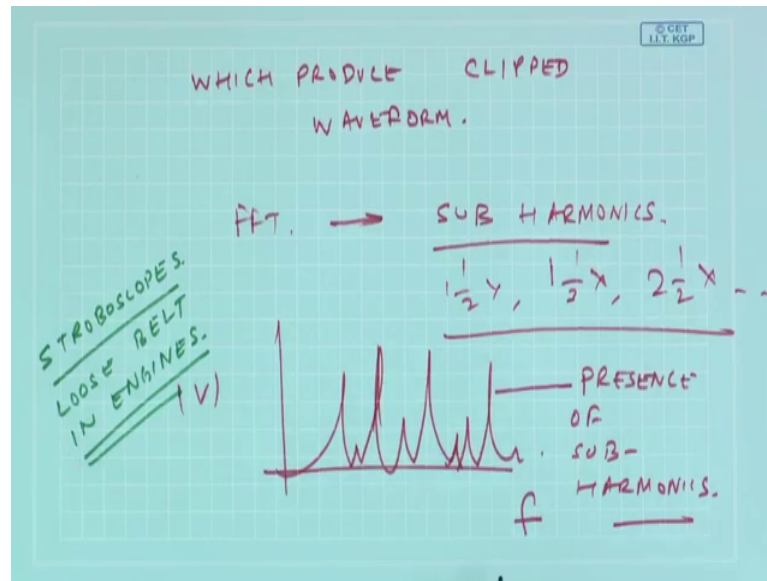 © CET
I.I.T. KGP
WHICH PRODUCE CLIPPED
WAVEFORM.
FFT. → SUB HARMONICS.
1 1/2 x, 1 1/2 x, 2 1/2 x - -
STROBOSCOPES.
LOOSE BELT
IN ENGINES.
|V|
PRESENCE
OF
SUB-
HARMONICS.
f